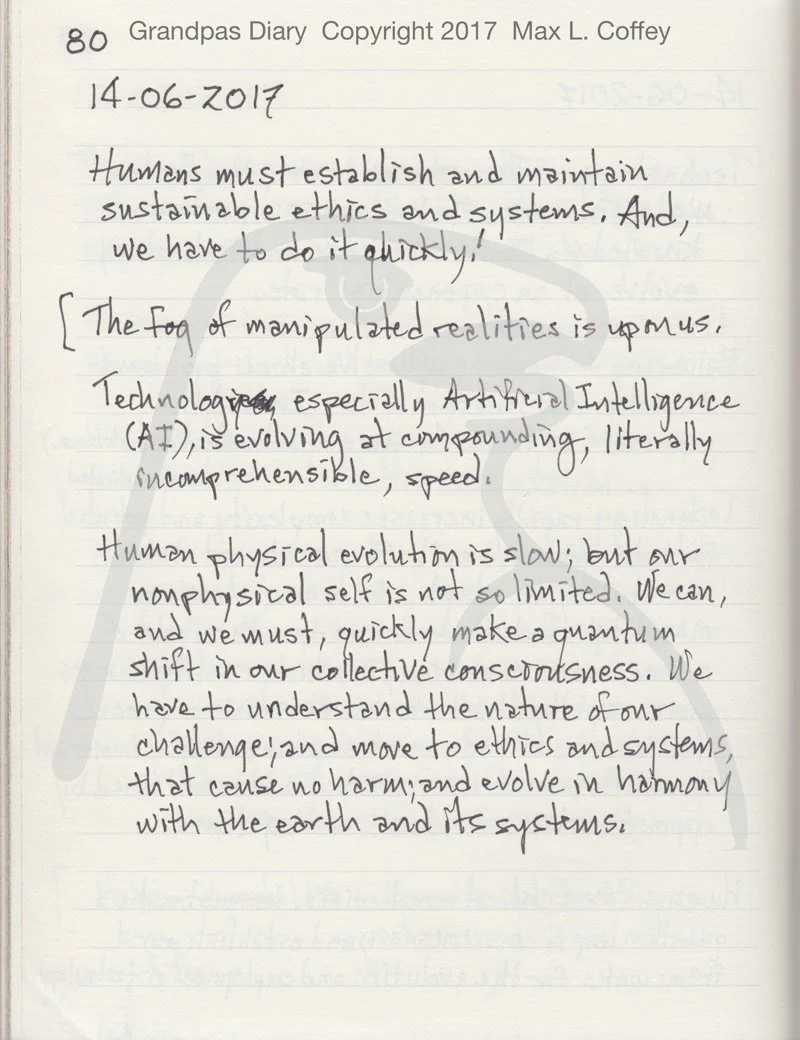 80 Grandpas Diary Copyright 2017 Max L. Coffey
14-06-2017
Humans must establish and maintain
sustainable ethics and systems. And,
we have to do it quickly!
[ The fog of manipulated realities is upon us.
Technology especially Artificial Intelligence
(AI), is evolving at compounding, literally
incomprehensible, speed.
Human physical evolution is slow; but our
nonphysical self is not so limited. We can,
and we must, quickly make a quantum
shift in our collective consciousness. We
have to understand the nature of our
challenge; and move to ethics and systems,
that cause no harm; and evolve in harmony
with the earth and its systems.